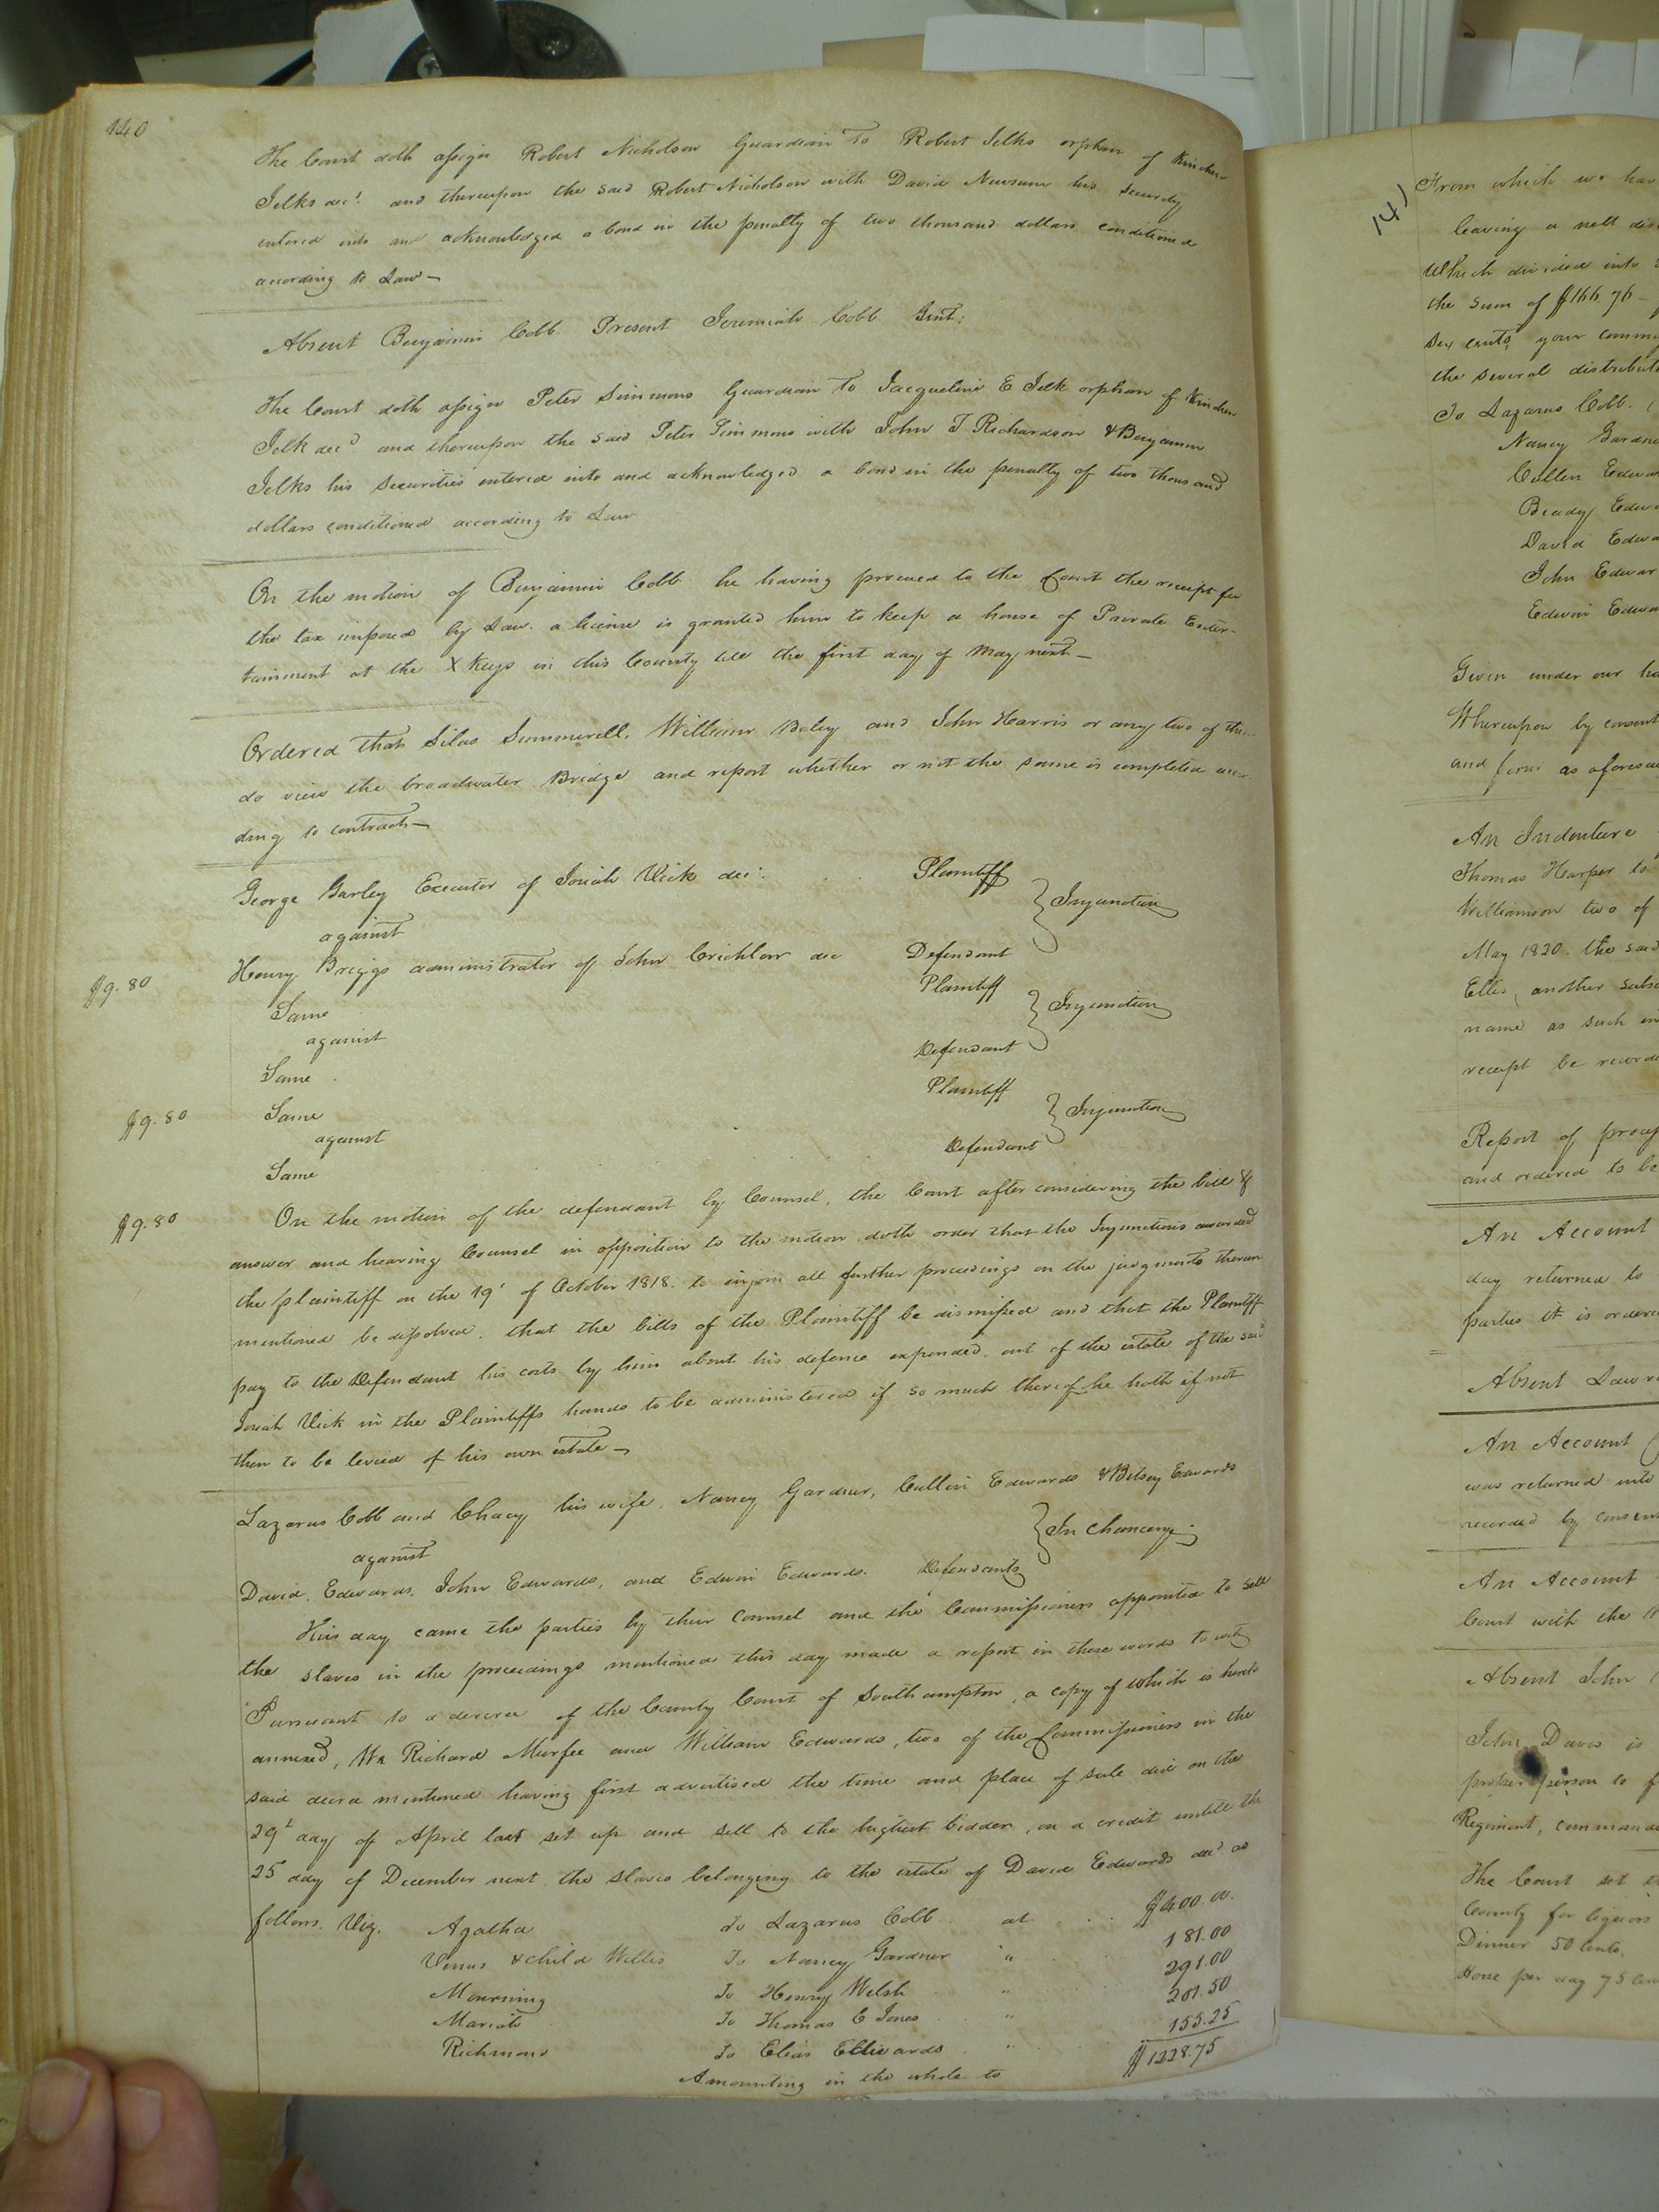 140
The Court doth assign Robert Nicholson Guardian To Robert Jelks orphan of Kinchen
Jelks decd. and thereupon the said Robert Nicholson with David Newsum his Security
entered into and acknowledged a bond in the penalty of two thousand dollars conditioned
according to Law—
Absent Benjamin Cobb. Present Jeremiah Cobb Gent:
The Court doth assign Peter Simmons Guardian To Jacqueline E Jelk orphan of Kinchen
Jelk decd and thereupon the said Peter Simmons with John T Richardson & Benjamin
Jelks his Securities entered into and acknowledged a bond in the penalty of two thousand
dollars conditioned according to Law
On the motion of Benjamin Cobb he having proved to the Court the receipt for
the tax imposed by Law. a license is granted him to keep a house of Private Enter-
tainment at the X Keys in this County till the first day of May next—
Ordered that Silas Summerell, William Boley and John Harris or any two of them
do view the broadwater Bridge and report whether or not the same is completed accor-
ding to contract—
George Gurley Executor of Josiah Vick decd. Plaintiff
against } Injunction
Henry Briggs administrator of John Crichlow dec Defendant
$9.80
Same Plaintiff
against } Injunction
Same Defendant
$9.80
Same Plaintiff
against } Injunction
Same Defendant
$9.80
On the motion of the defendant by Counsel, the Court after considering the bill &
answer and hearing Counsel in opposition to the motion doth order that the Injunctions awarded
the plaintiff on the 19t of October 1818. to injoin all further proceedings on the judgments therein
mentioned be dissolved. that the bills of the Plaintiff be dismissed and that the Plaintiff
pay to the Defendant his costs by him about his defence expended, out of the estate of the said
Josiah Vick in the Plaintiffs hands to be administered if so much thereof he hath if not
then to be levied of his own estate—
Lazarus Cobb and Chacy his wife, Nancy Gardner, Cullin Edwards & Betsey Edwards
against } In Chancery
David Edwards, John Edwards, and Edwin Edwards. Defendants
This day came the parties by their counsel and the Commissioners appointed to sell
the slaves in the proceedings mentioned this day made a report in these words to wit
"Pursuant to a decree of the County Court of Southampton, a copy of which is hereto
annexed, We Richard Murfee and William Edwards, two of the Commissioners in the
said decree mentioned having first advertised the time and place of sale did on the
29t day of April last set up and sell to the highest bidder, on a credit untill the
25 day of December next the slaves belonging to the estate of David Edwards decd as
follows. Viz. Agatha To Lazarus Cobb at $400.00.
Venus & child Willis To Nancy Gardner " 181.00
Mourning To Henry Welsh " 291.00
Mariah To Thomas C Jones " 201.50
Richmond To Elias Edwards " 155.25
Amounting in the whole to $1228.75
141
From which we hav
leaving a nett
Which divided into
the sum of $166.76—
Six cents, your comm
the several distribut
To Lazarus Cobb.
Nancy Gardne
Cullen Edwa
David Edwa
John Edwar
Edwin Edwa
Given under our ha
Whereupon by consent
and form as aforesai
An Indenture
Thomas Harper to
Williamson two of
May 1820. the said
Ellis, another subsc
name as such
receipt be recorde
Report of
and ordered to be
An Account
day returned to
parties it is ordere
Absent Lawre
An Account
was returned into
recorded by consent
An Account
Court with the
Absent John
John Davis is
proper person to
Regiment, commande
The Court set
County for liquors
Dinner 50 Cents,
Horse per day 75 Cen